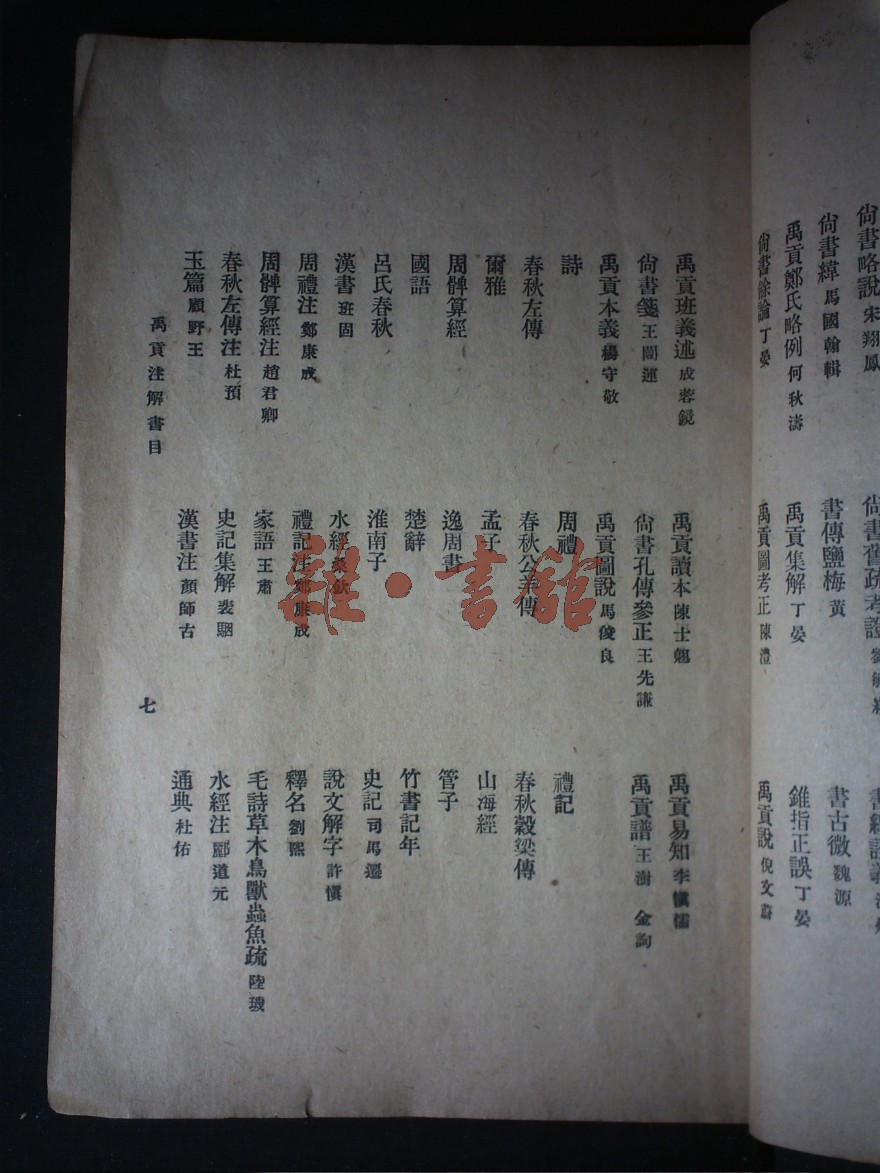 尙書略說 宋翔鳳 尙書舊疏考證
尙書緯 馬國翰輯 書傳鹽梅 黃 書古微 魏源
禹貢鄭氏略例 何秋濤 禹貢集解 丁晏 錐指正誤 丁晏
尙書餘論 丁晏 禹貢圖考正 陳澧 禹貢說 倪文蔚
禹貢班義述 成蓉鏡 禹貢讀本 陳士翹 禹貢易知 李愼儒
尙書箋 王闓運 尙書孔傳參正 王先謙 禹貢譜 王澍 金詢
禹貢本義 楊守敬 禹貢圖說 馬俊良
詩 周禮 禮記
春秋左傳 春秋公羊傳 春秋穀梁傳
爾雅 孟子 山海經
周髀算經 逸周書 管子
國語 楚辭 竹書記年
呂氏春秋 淮南子 史記 司馬遷
漢書 班固 水經 桑欽 說文解字 許愼
周禮注 鄭康成 禮記注 鄭康成 釋名 劉熙
周髀算經注 趙君卿 家語 王肅 毛詩草木鳥獸蟲魚疏 陸璣
春秋左傳注 杜預 史記集解 裴駰 水經注 酈道元
玉篇 顧野王 漢書注 顏師古 通典 杜佑
禹貢注解書目 七
雜·書館